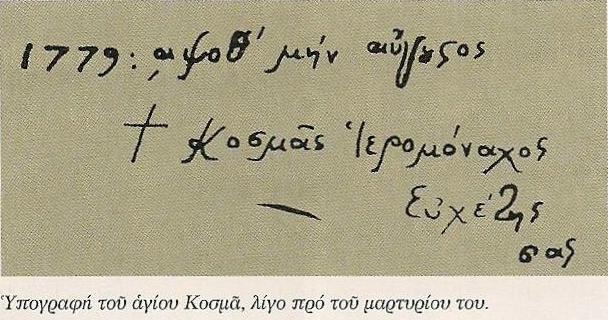 1779: ͵αψοθʹ μὴν αὔγουςος
† Κοσμᾶς Ἱερομόναχος
Εὐχέτης
σας
Ὑπογραφή τοῦ ἁγίου Κοσμᾶ, λίγο πρό τοῦ μαρτυρίου του.